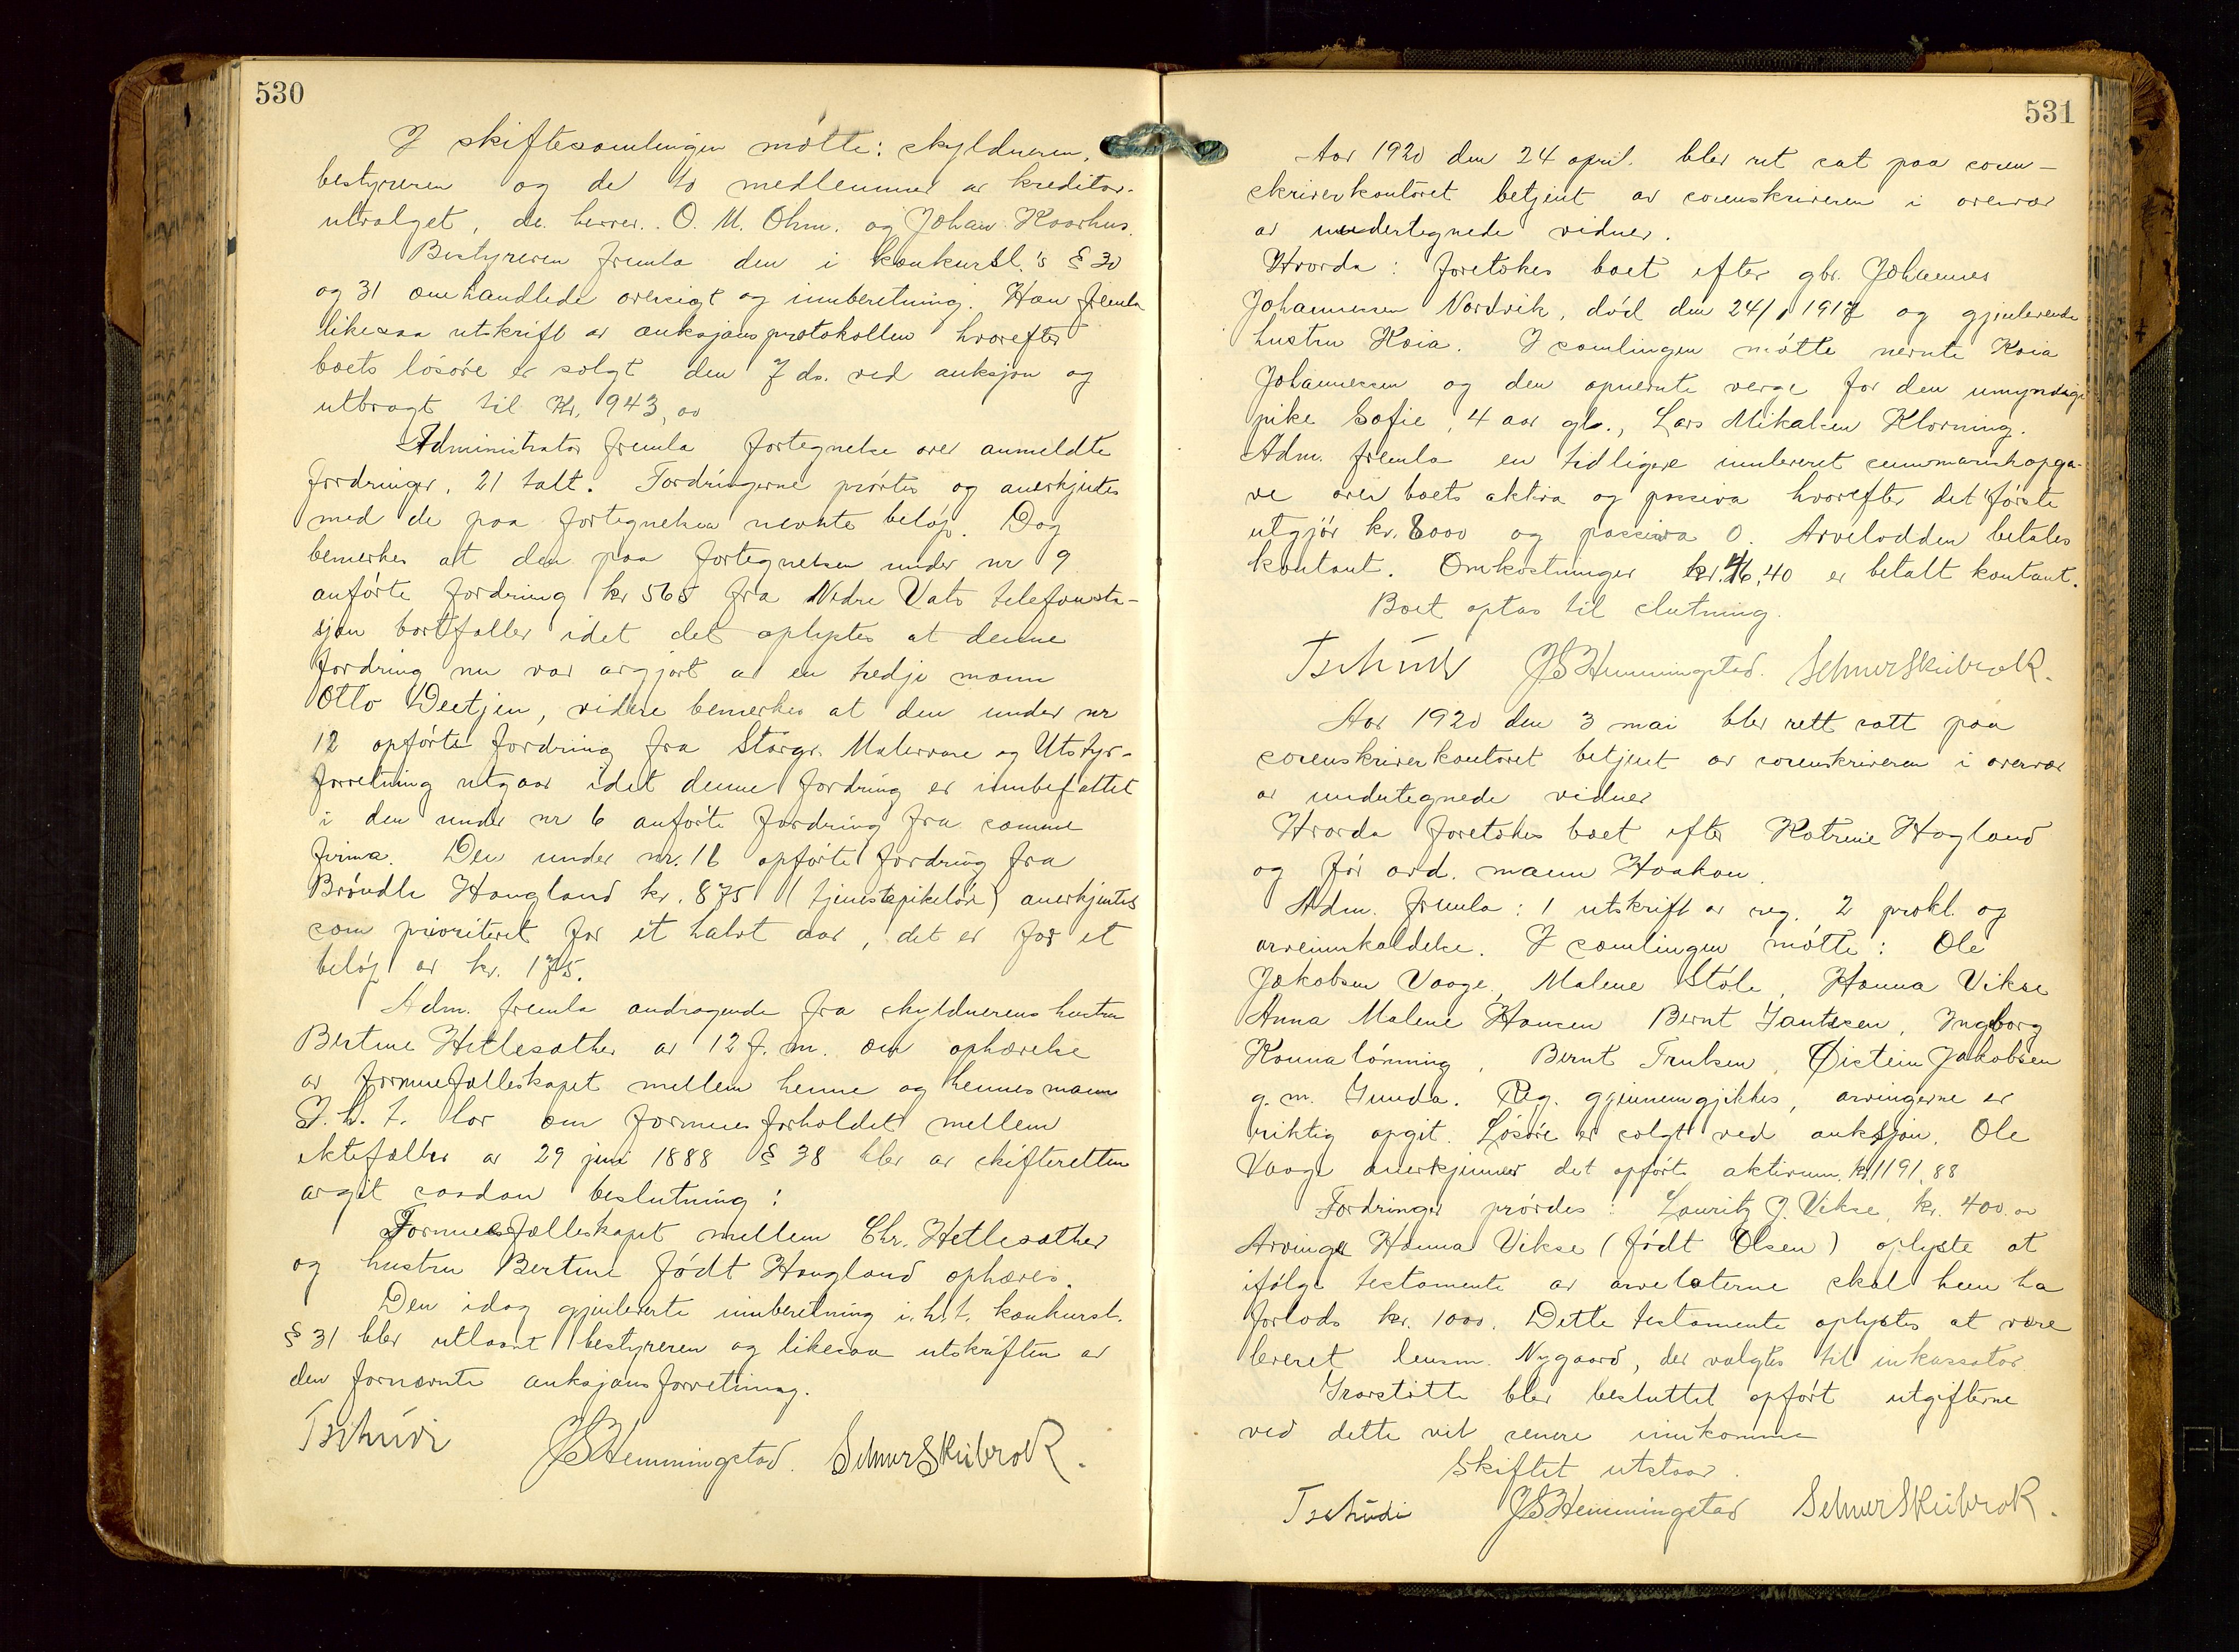 530
I skiftesamlingen møtte: skyldneren,
bestyreren og de to medlemmer av kreditor-
utvalget, de herrer. O. M. Ohm. og Johan Kaarhus.
Bestyreren fremla den i konkursl.'s § 30
og 31 omhandlede oversigt og innberetning. Han fremla
likesaa utskrift av auksjonsprotokollen hvorefter
boets løsøre er solgt den 7 ds. ved auksjon og
utbragt til Kr. 943,00
Administrator fremla fortegnelse over anmeldte
fordringer, 21 talt. Fordringerne prøvtes og anerkjentes
med de paa fortegnelsen nevnte beløp. Dog
bemerkes at den paa fortegnelsen under nr 9
anførte fordring kr 565 fra Nedre Vats telefonsta-
sjon bortfaller idet det oplystes at denne
fordring nu var avgjort av en tredje mann
Otto Deetjen, videre bemerkes at den under nr
12 opførte fordring fra Stavgr. Malervare og Utstyr-
forretning utgaar idet denne fordring er innbefattet
i den under nr 6 anførte fordring fra samme
firma. Den under nr. 16 opførte fordring fra
Brøndla Haugland kr. 875 (tjenestepikeløn) anerkjentes
som prioritert for et halvt aar, det er for et
beløp av kr. 175.
Adm. fremla andragende fra skyldnerens hustru
Bertine Hetlesæther av 12 f. m. om ophævelse
av formuefælleskapet mellem henne og hennes mann
I. h. t. lov om formuesforholdet mellem
ektefæller av 29 juni 1888 § 38 blev av skifteretten
avgit saadan beslutning:
Formuesfælleskapet mellem Chr. Hetlesæther
og hustru Bertine født Haugland ophæves.
Den idag gjenleverte innberetning i. h. t. konkursl.
§ 31 blev utlaant bestyreren og likesaa utskriften av
den fornævnte auksjonsforretning.
Tschudi JS Hemmingstad. Selmer Skibrok.
531
Aar 1920 den 24 april. blev ret sat paa soren-
skriverkontoret betjent av sorenskriveren i overvær
av undertegnede vidner.
Hvorda: foretokes boet efter gbr. Johannes
Johannessen Nordvik, død den 24/1 1917 og gjenlevende
hustru Kaia. I samlingen møtte nevnte Kaia
Johannessen og den opnevnte verge for den umyndige
pike Sofie, 4 aar gl., Lars Mikalsen Klovning.
Adm. fremla en tidligere innleveret summariskopga-
ve over boets aktiva og passiva hvorefter det første
utgjør kr. 8000 og passiva 0. Arvelodden betales
kontant. Omkostninger kr. 46,40 er betalt kontant.
Boet optas til slutning.
Tschudi JS Hemmingstad. Selmer Skibrok.
Aar 1920 den 3 mai blev rett satt paa
sorenskriverkontoret betjent av sorenskriveren i overvær
av undertegnede vidner
Hvorda foretokes boet efter Katrine Hagland
og før avd. mann Haakon.
Adm. fremla: 1 utskrift av reg. 2 prokl. og
arveinnkaldelse. I samlingen møtte: Ole
Jakobsen Vaage, Malene Støle, Hanna Vikse
Anna Malene Hansen Bernt Jantesen, Ingeborg
Konna lønning, Bernt Trulsen, Øistein Jakobsen
g. m. Gunda. Reg. gjennemgikkes, arvingerne er
riktig opgit. Løsøre er solgt ved auksjon. Ole
Vaage anerkjenner det opførte aktivum. kr 1191,88
Fordringer prøvdes: Lauritz J. Vikse, kr. 400.00
Arvinge Hanna Vikse (født Olsen) oplyste at
ifølge testamente av arvelaterne skal hun ha
forlods kr. 1000. Dette testamente oplystes at være
leveret lensm. Nygaard, der valgtes til inkassator.
Gravstøtte blev besluttet opført utgifterne
ved dette vil senere innkomme
Skiftet utstaar.
Tschudi JS Hemmingstad Selmer Skibrok.